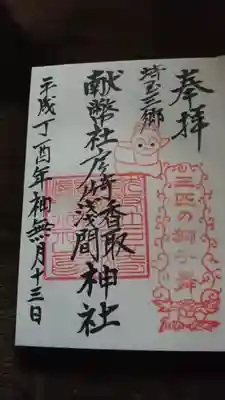 奉拝
三匹の獅子舞
埼玉三郷
献幣社彦倉香取浅間神社
平成丁酉年神無月十三日